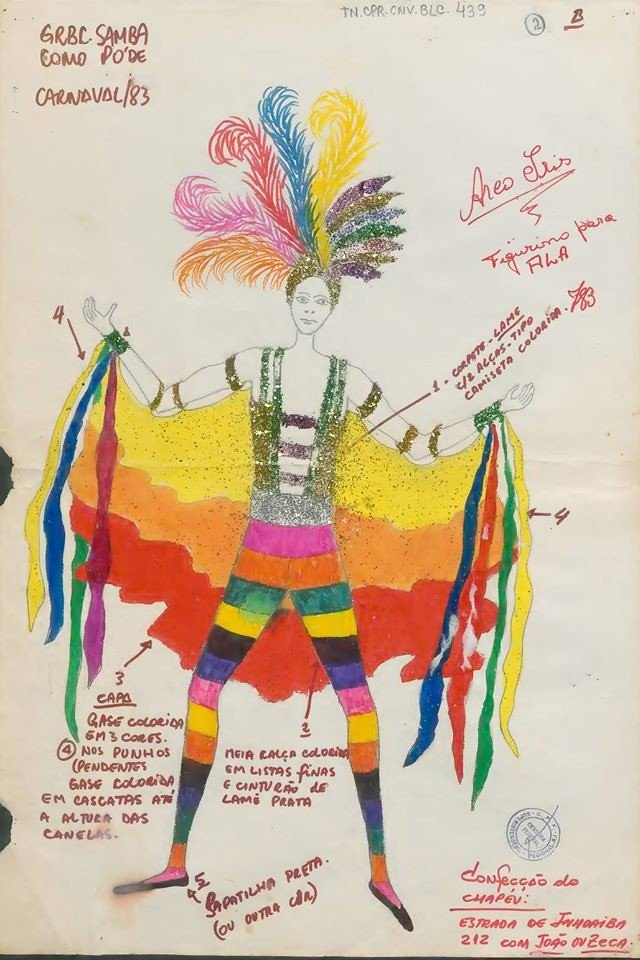 TN.CPR.CNV.BLC. 439
2 B
GRBC. SAMBA
COMO PÓDE
CARNAVAL/83
Arco Iris
Figurino para
ALA
783
1 - CORPETE - LAMÊ
C/2 ALÇAS - TIPO
CAMISETA COLORIDA.
4
4
3
CAPA
GASE COLORIDA
EM 3 CORES.
4 NOS PUNHOS
(PENDENTES
GASE COLORIDA
EM CASCATAS ATÉ
A ALTURA DAS
CANELAS.
2
MEIA CALÇA COLORIDA
EM LISTAS FINAS
E CINTURÃO DE
LAMÊ PRATA
5
SAPATILHA PRETA.
(OU OUTRA CÔR)
CENSURA
FEDERAL
Confecção do
CHAPÉU:
ESTRADA DE INHOAIBA
212 COM JOÃO OU ZECA.